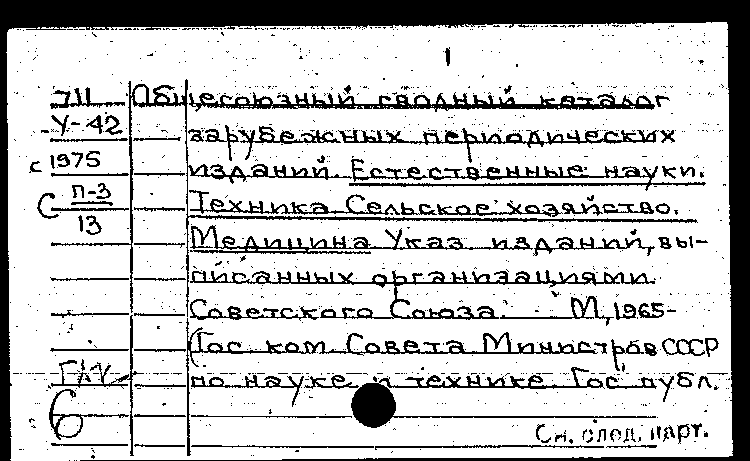 1
711 Общесоюзный сводный каталог
У-42 зарубежных периодических
с 1975 изданий. Естественные науки.
С П-3 Техника. Сельское хозяйство.
13 Медицина Указ. изданий, вы-
писанных организациями
Советского Союза. М., 1965-
(Гос. ком. Совета Министров СССР
по науке и технике. Гос. публ.
6
См. след. карт.